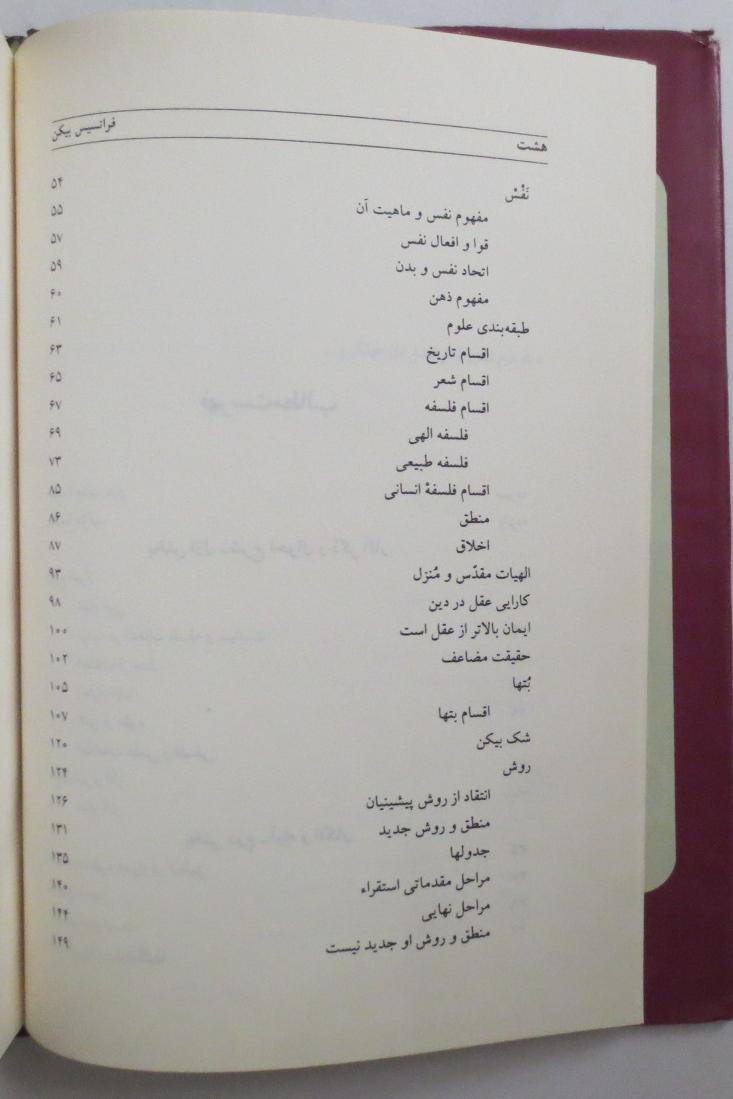 هشت فرانسیس بیکن
نَفْسْ ۵۴
مفهوم نفس و ماهیت آن ۵۵
قوا و افعال نفس ۵۷
اتحاد نفس و بدن ۵۹
مفهوم ذهن ۶۰
طبقه‌بندی علوم ۶۱
اقسام تاریخ ۶۳
اقسام شعر ۶۵
اقسام فلسفه ۶۷
فلسفه الهی ۶۹
فلسفه طبیعی ۷۳
اقسام فلسفهٔ انسانی ۸۵
منطق ۸۶
اخلاق ۸۷
الهیات مقدّس و مُنزل ۹۳
کارایی عقل در دین ۹۸
ایمان بالاتر از عقل است ۱۰۰
حقیقت مضاعف ۱۰۲
بُتها ۱۰۵
اقسام بتها ۱۰۷
شک بیکن ۱۲۰
روش ۱۲۴
انتقاد از روش پیشینیان ۱۲۶
منطق و روش جدید ۱۳۱
جدولها ۱۳۵
مراحل مقدماتی استقراء ۱۴۰
مراحل نهایی ۱۴۴
منطق و روش او جدید نیست ۱۴۹